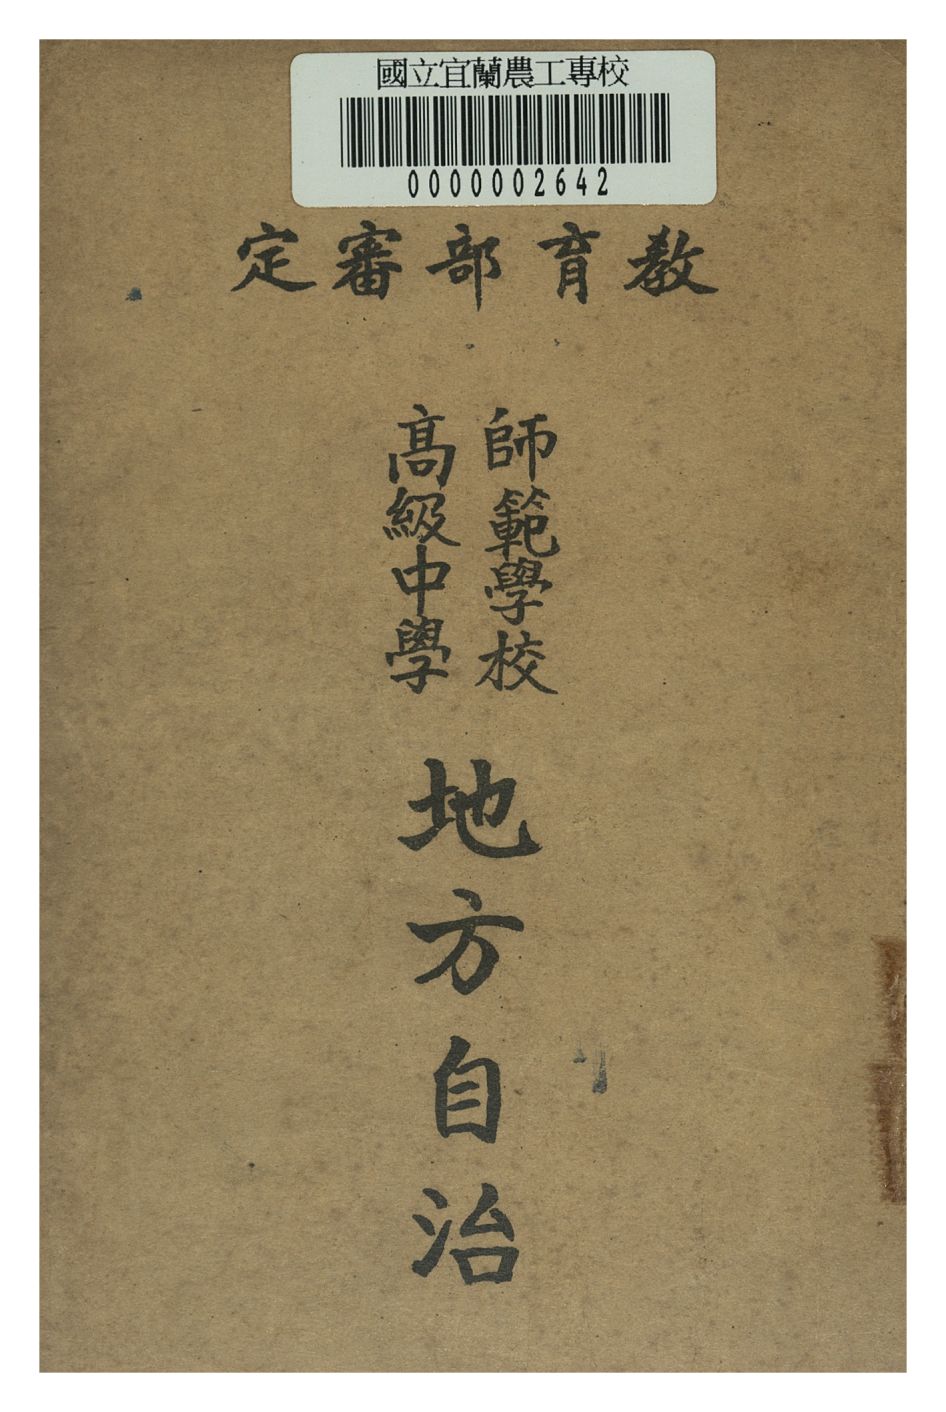 國立宜蘭農工專校
0000002642
教育部審定
師範學校
高級中學
地方自治